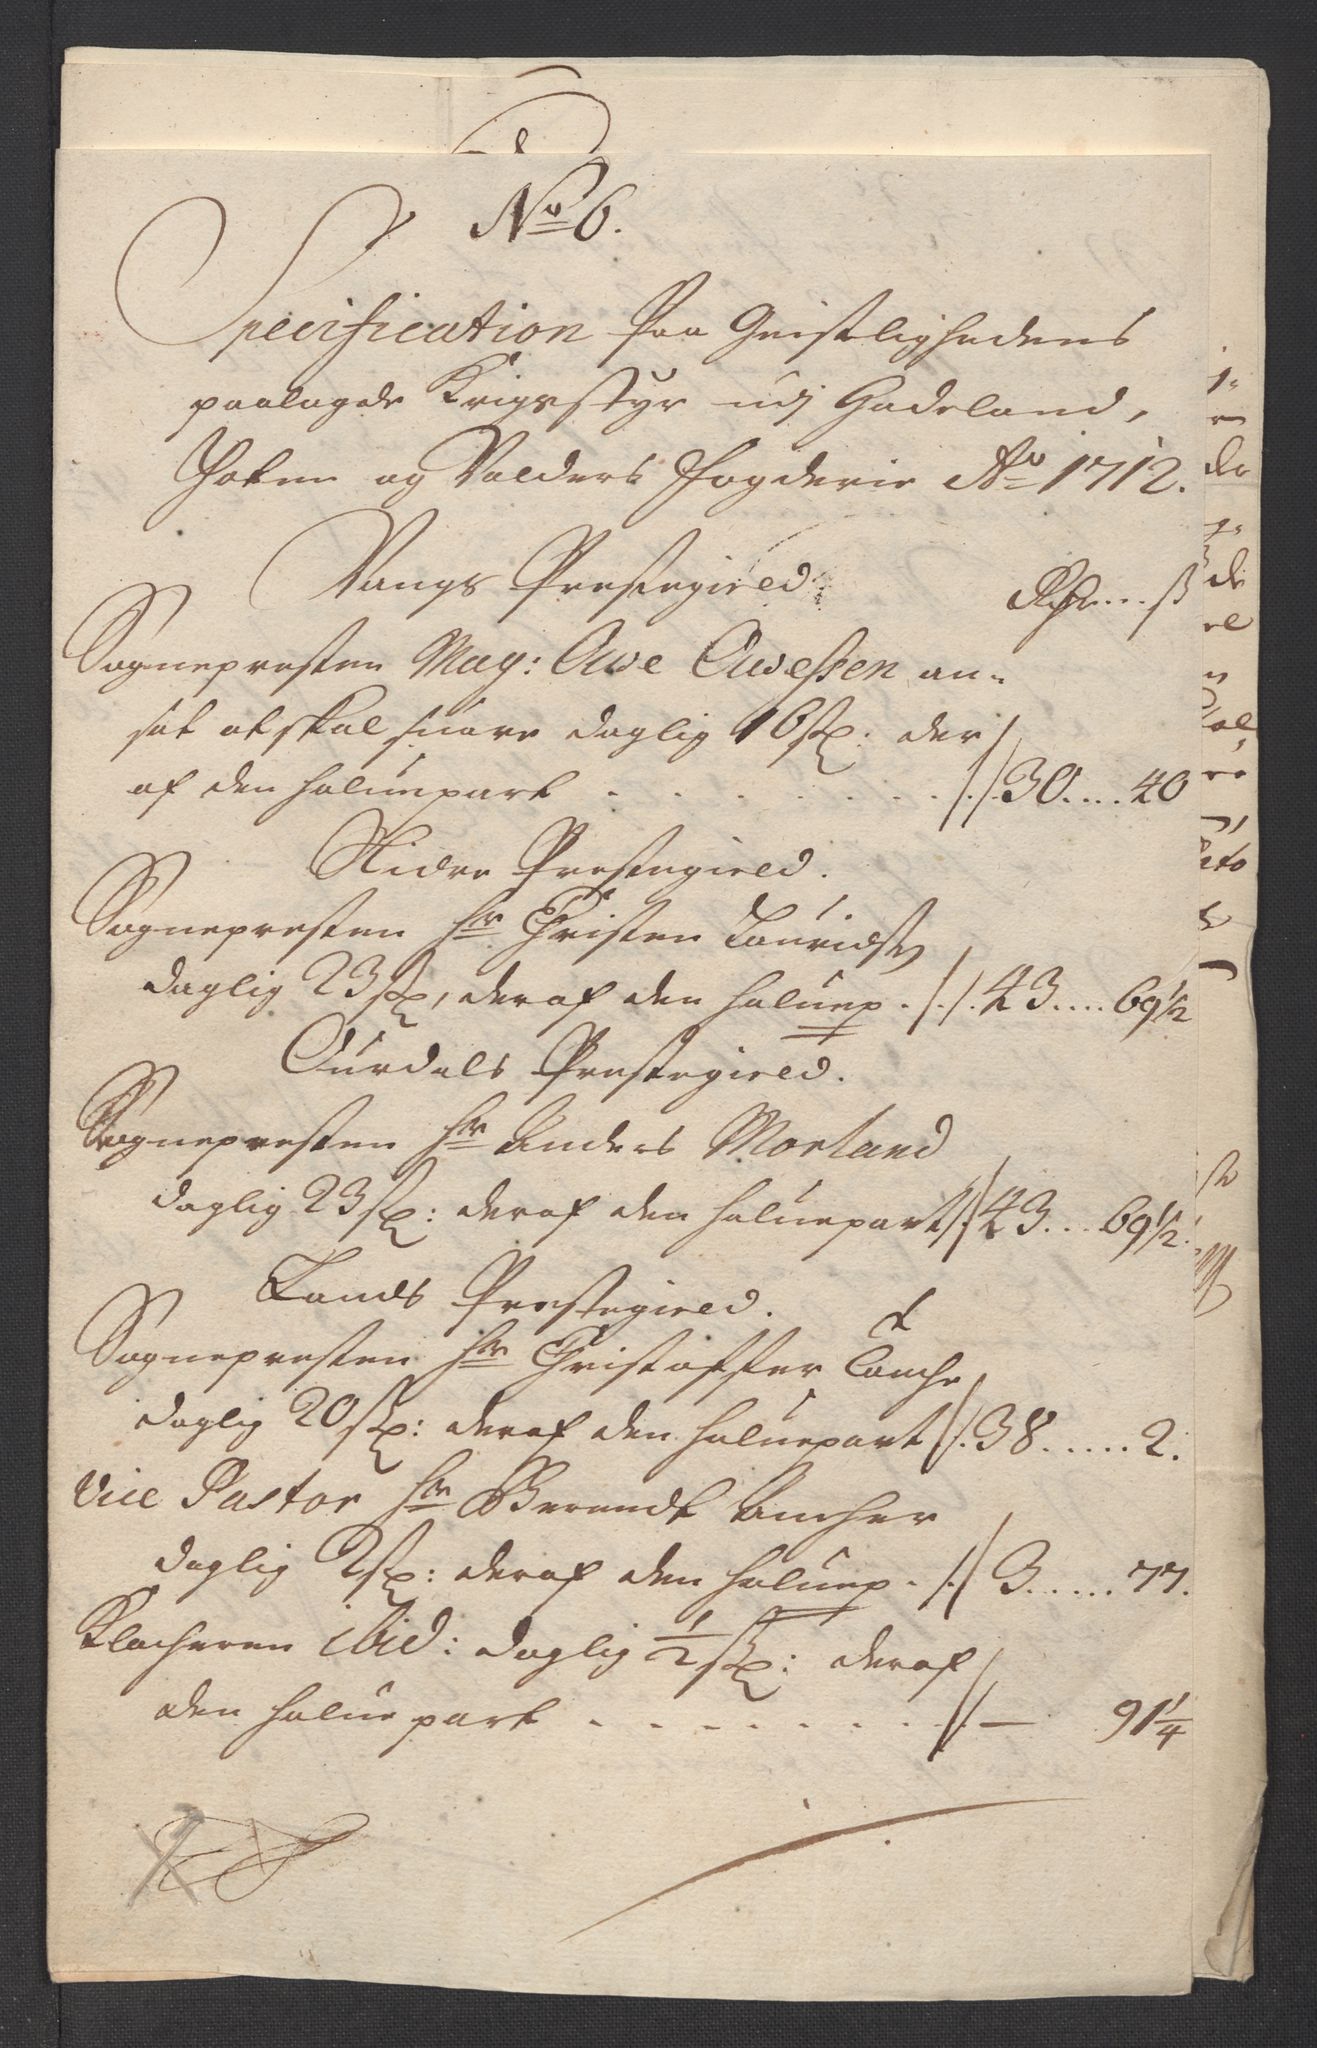 No 6.
Specification Paa Geistlighedens
paalagde Krigsstyr udj Hadeland,
Toten og Valders fogderie Ao 1712.
Vangs Prestegield
Rdr ... ß
Sognepresten Mag: Owe Owessen an-
sat at skal suare daglig 16 sk: der
af den halvepart . . . . . . . . 30....40
Slidre Prestegield.
Sognepresten Hr Christen Lauridss
daglig 23 sk, deraf den haluep. 43....69½
Ourdals Prestegield.
Sognepresten Hr Anders Morland
daglig 23 sk: deraf den haluepart 43...69½.
Lands Prestegield.
Sognepresten Hr Christoffer
daglig 20 sk: deraf den haluepart 38.....2.
Vice Pastor Hr Berendt Ancher
daglig 2 sk: deraf den haluep. 3.....77.
Klocheren ibid: daglig ½ sk: deraf
den halue part . . . . . . . — 91¼